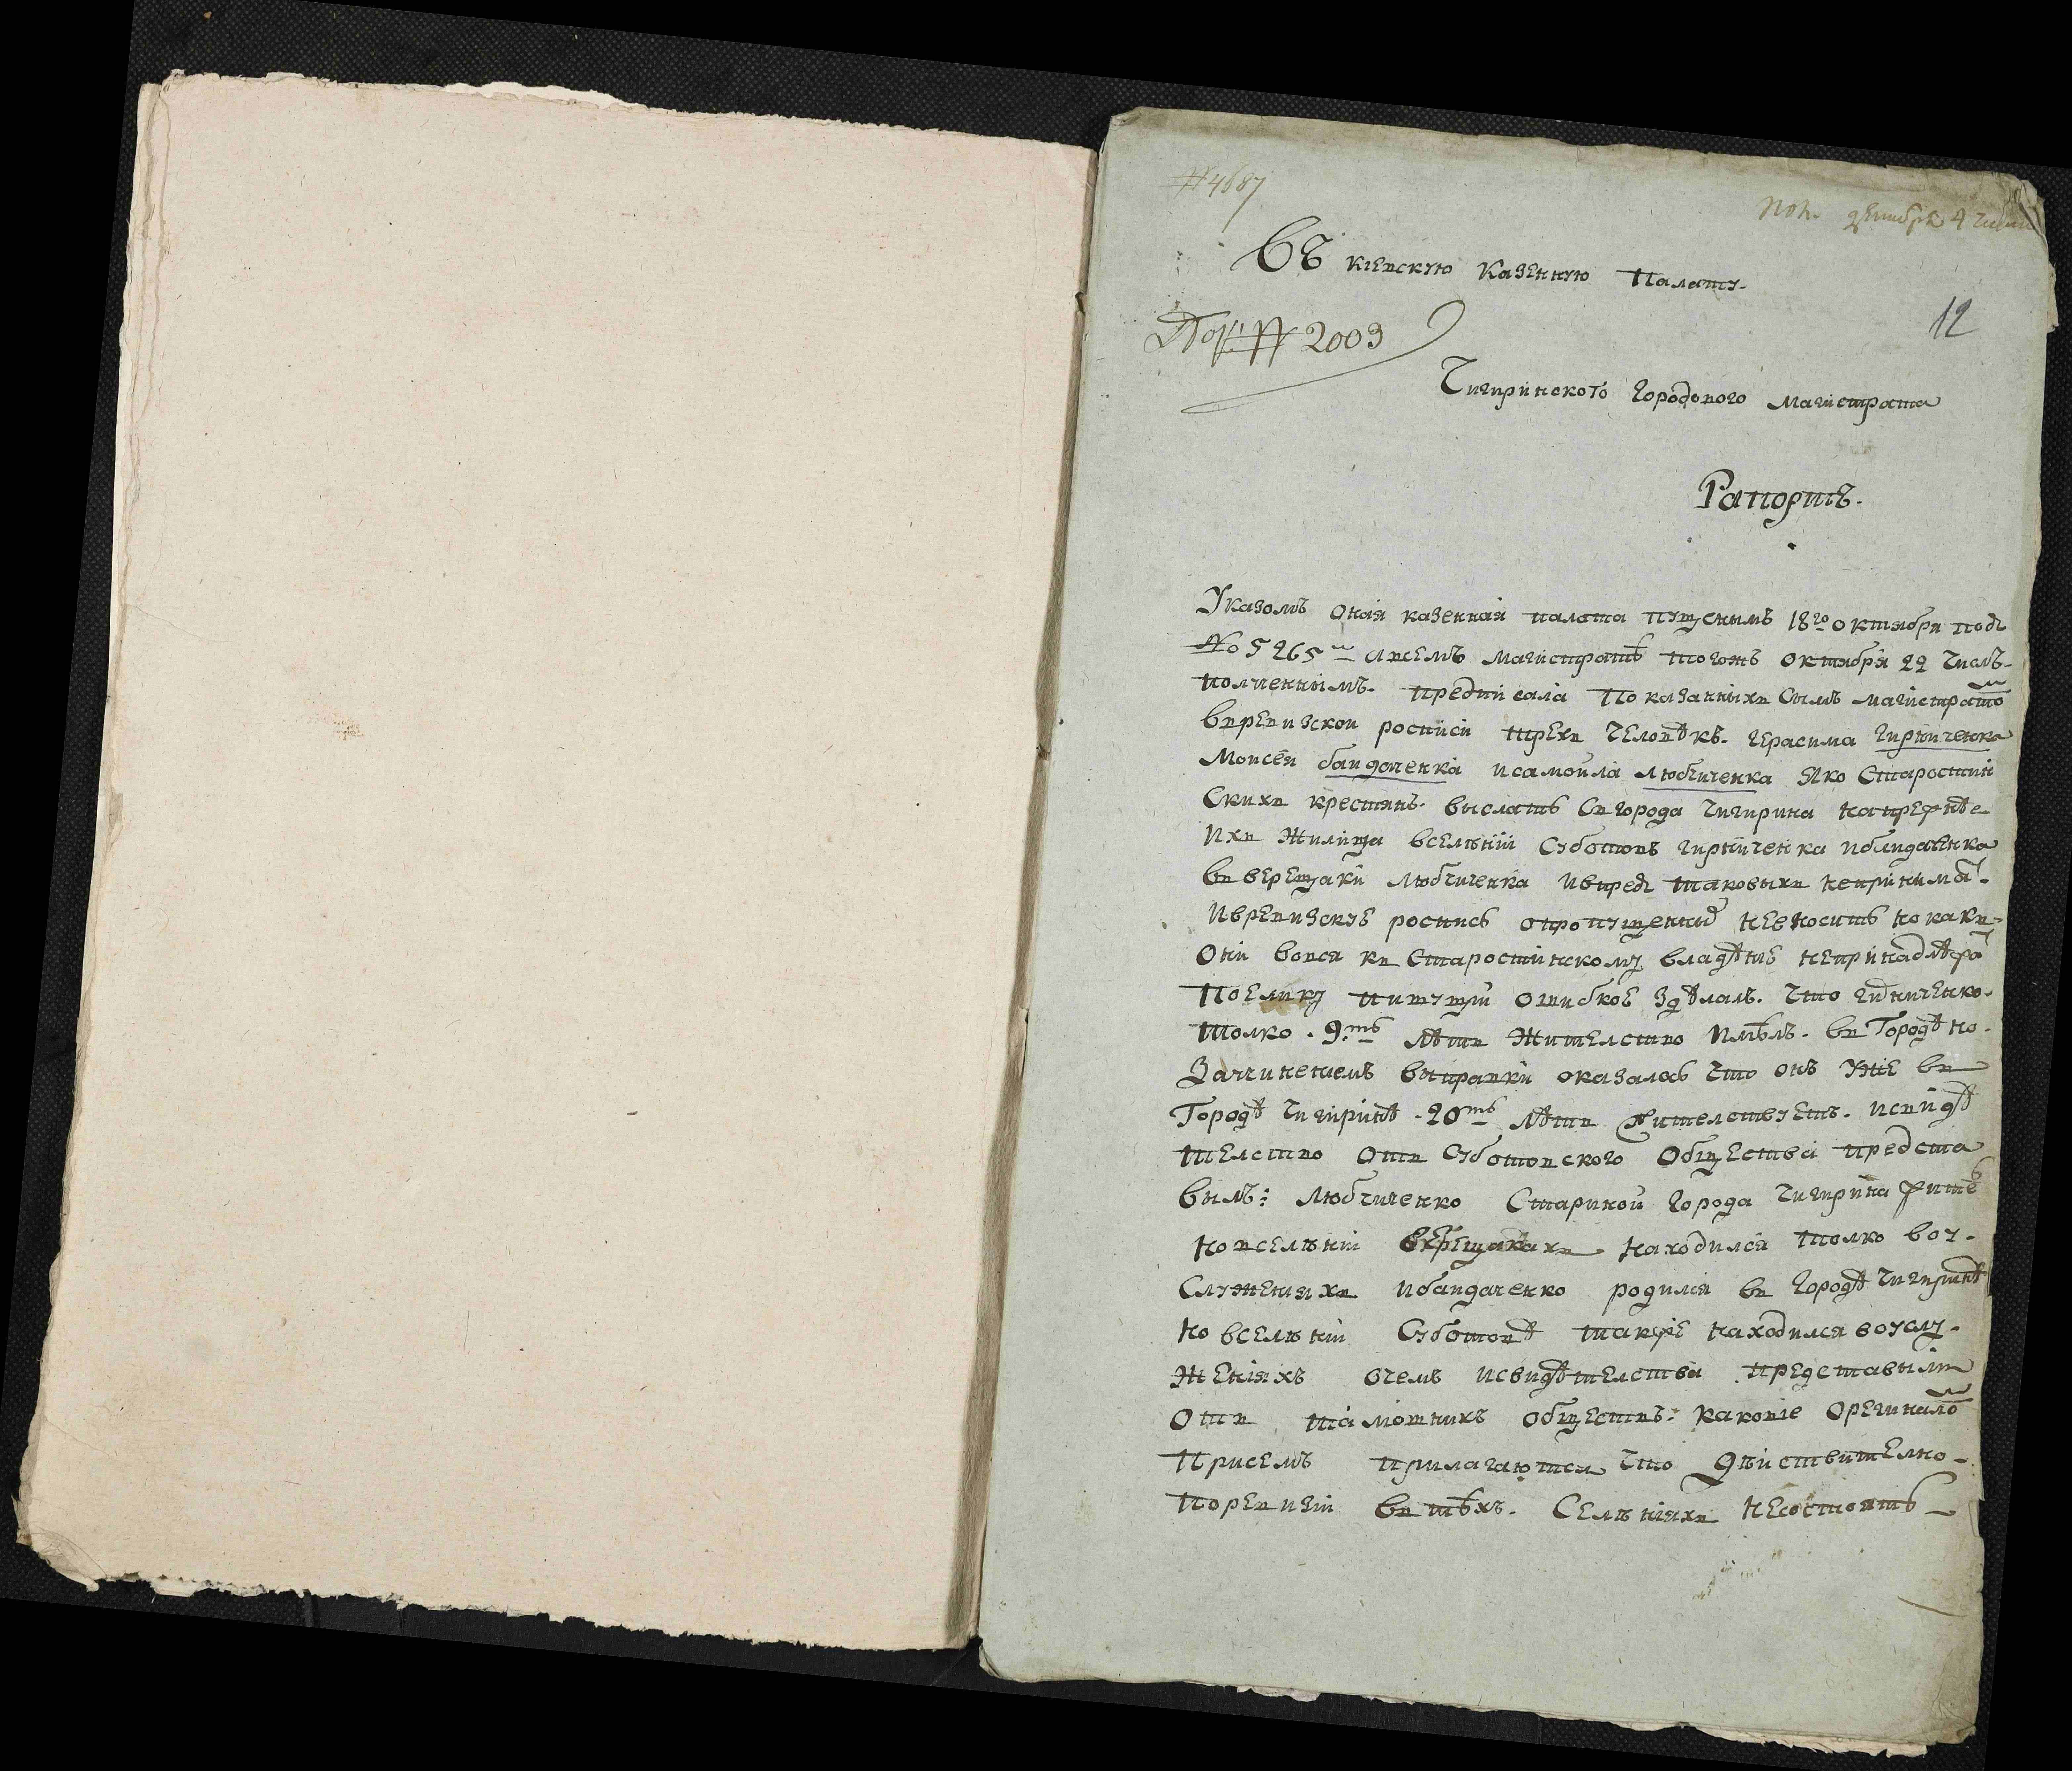 № 4687
Пол. 4 числа
Въ киевскую казенную Палату.
Док: № 2003
12
Чигиринского городового магистрата
Рапортъ.
Указомъ оная казенная палата пущенимъ 18го октября подъ
№ 5265м авсемъ магистратѣ тогожъ октября 22 числъ
полученнимъ. предписала показанныхъ симъ магистратом
въревизской росписи трехъ человѣкъ. герасима гирниченка
Моисея бандаченка исамоила любчиченка яко старостин
скихъ крестянъ. выслать съгорода чигирина напрежнѣе
ихъ жилища вселѣнии суботовъ гирниченка ибандаченка
въверещаки любчиченка ивпредъ таковыхъ непринимат.
Иврѣвизскуе роспись опропущенных невносить но какъ
они вовся къ старостинскому владѣние непринадлѣжат
поелику пишущий ошибкое здѣлалъ. что гирниченко
толко 9ть лѣтъ жителство имѣлъ. въ городѣ но
Заучинениемъ выправки оказалось что онъ уже въ
Городѣ чигиринѣ 20ть лѣтъ жителствуетъ. исвидѣ
телство отъ суботовского общества предста
вылъ: любчиченко старинои города чигирина жител
новселѣнии верещакахъ находился толко воу
служенияхъ ибандаченко родился въ городѣ чигиринѣ
но вселѣнии суботовѣ также находился воуслу
женияхъ очемъ исвидѣтелства представылы
отъ тамошнихъ обществъ: каковие орегиналом
присемъ прилагаются что дѣиствително
поревизии въ тѣхъ. селѣнияхъ несостоять